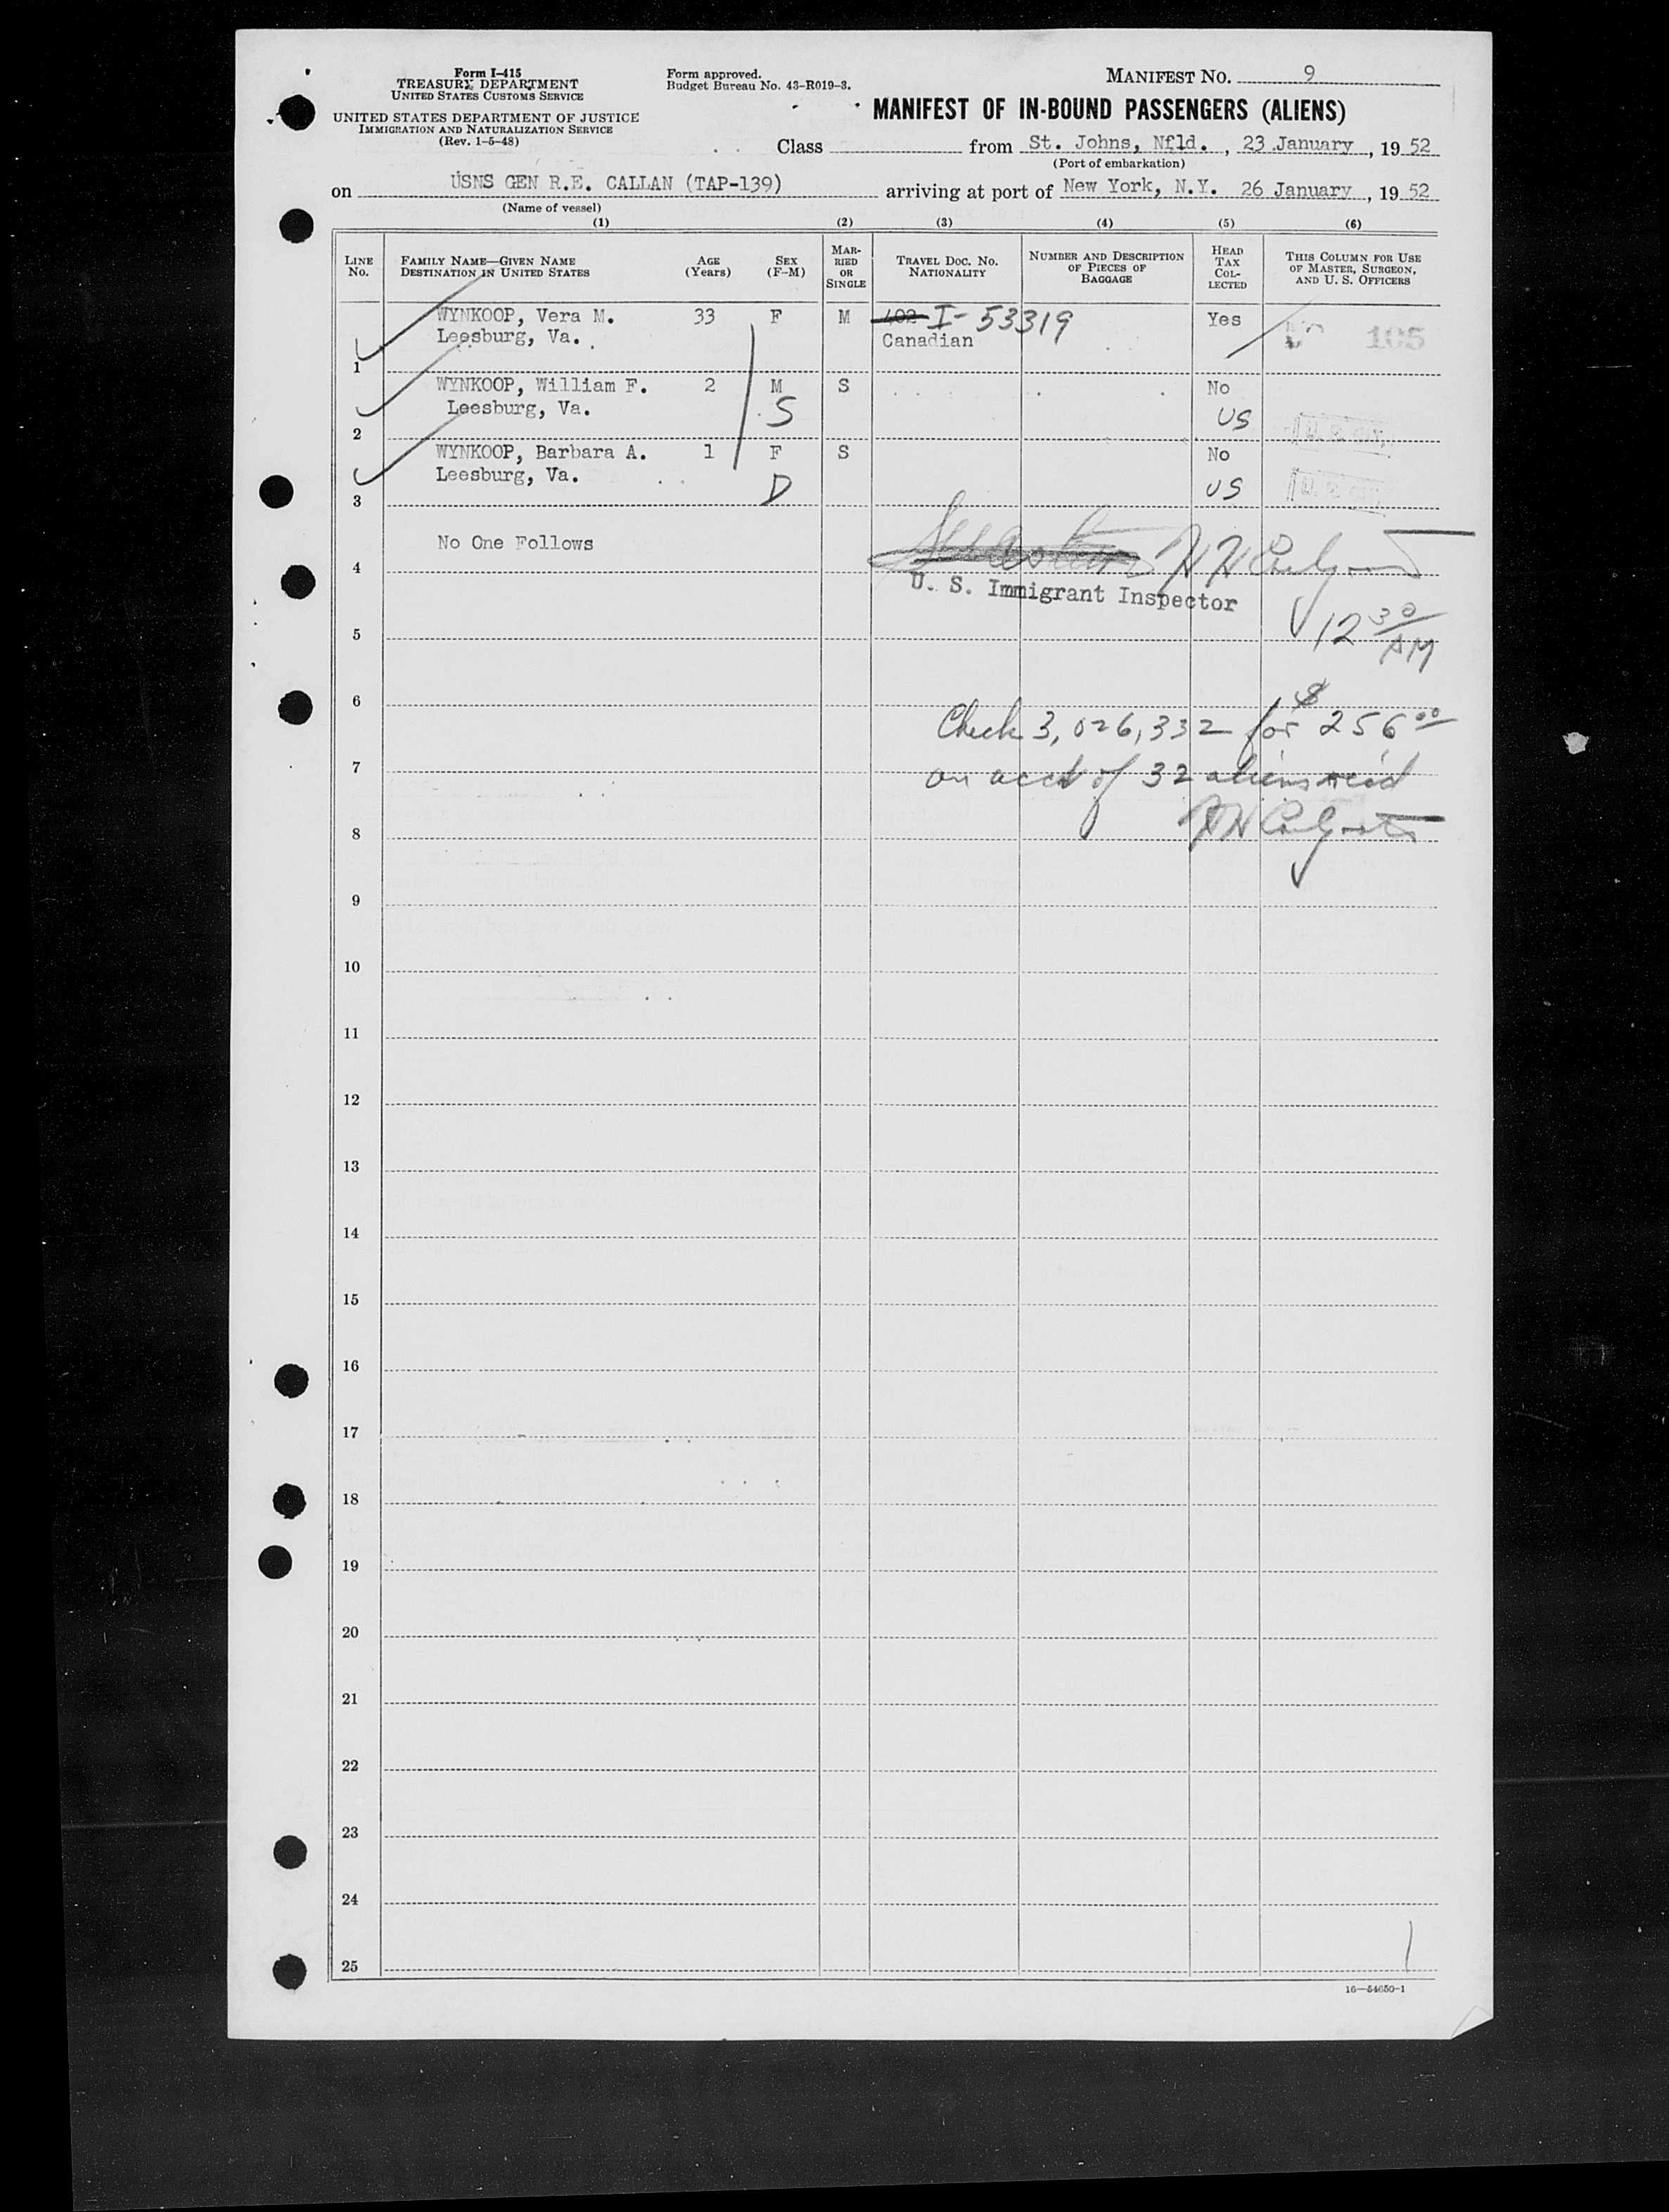 Form I-415
TREASURY DEPARTMENT
UNITED STATES CUSTOMS SERVICE
UNITED STATES DEPARTMENT OF JUSTICE
IMMIGRATION AND NATURALIZATION SERVICE
(Rev. 1-5-48)
Form approved.
Budget Bureau No. 43-R019-3.
MANIFEST NO. 9
MANIFEST OF IN-BOUND PASSENGERS (ALIENS)
Class from St. Johns, Nfld. , 23 January , 19 52
(Port of embarkation)
on USNS GEN R.E. CALLAN (TAP-139) arriving at port of New York, N.Y. 26 January , 19 52
(Name of vessel)
(1) (2) (3) (4) (5) (6)
LINE No. FAMILY NAME—GIVEN NAME DESTINATION IN UNITED STATES AGE (Years) SEX (F-M) MAR-RIED OR SINGLE TRAVEL DOC. NO. NATIONALITY NUMBER AND DESCRIPTION OF PIECES OF BAGGAGE HEAD TAX COL-LECTED THIS COLUMN FOR USE OF MASTER, SURGEON, AND U. S. OFFICERS
WYNKOOP, Vera M. 33 F M 402 I-53319 Yes
Leesburg, Va. Canadian 105
1
WYNKOOP, William F. 2 M S No
Leesburg, Va. S US
2
WYNKOOP, Barbara A. 1 F S No
Leesburg, Va. D US
3
No One Follows
4
U. S. Immigrant Inspector
12 30 AM
5
6
Check 3,026,332 for $256 00
7
on acct of 32 aliens rec'd
8
9
10
11
12
13
14
15
16
17
18
19
20
21
22
23
24
25
16—54650-1